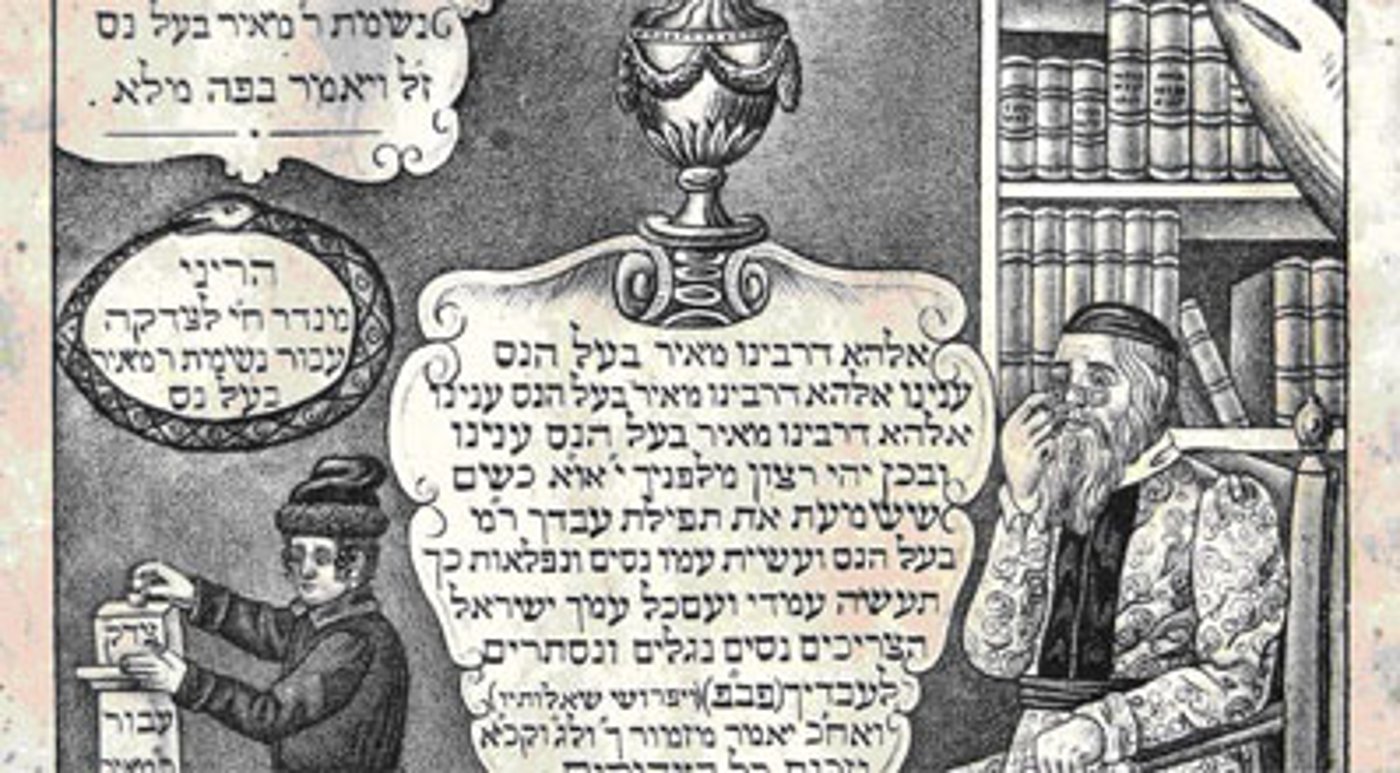 נשמת ר מאיר בעל נס
ז"ל ויאמר בפה מלא .
הריני
מנדר ח"י לצדקה
עבור נשמת ר מאיר
בעל נס
אלהא דרבינו מאיר בעל הנס
ענינו אלהא דרבינו מאיר בעל הנס ענינו
אלהא דרבינו מאיר בעל הנס ענינו
ובכן יהי רצון מלפניך י"אוא כשם
ששמעת את תפילת עבדך ר"מ
בעל הנס ועשית עמו נסים ונפלאות כך
תעשה עמדי ועם כל עמך ישראל
הצריכים נסים נגלים ונסתרים
לעבדיך (פב"פ) (ויפרושי שאלותיו)
ואח"כ יאמר מזמור ך' ולג' וקכ"א
כל
צדק
עבור